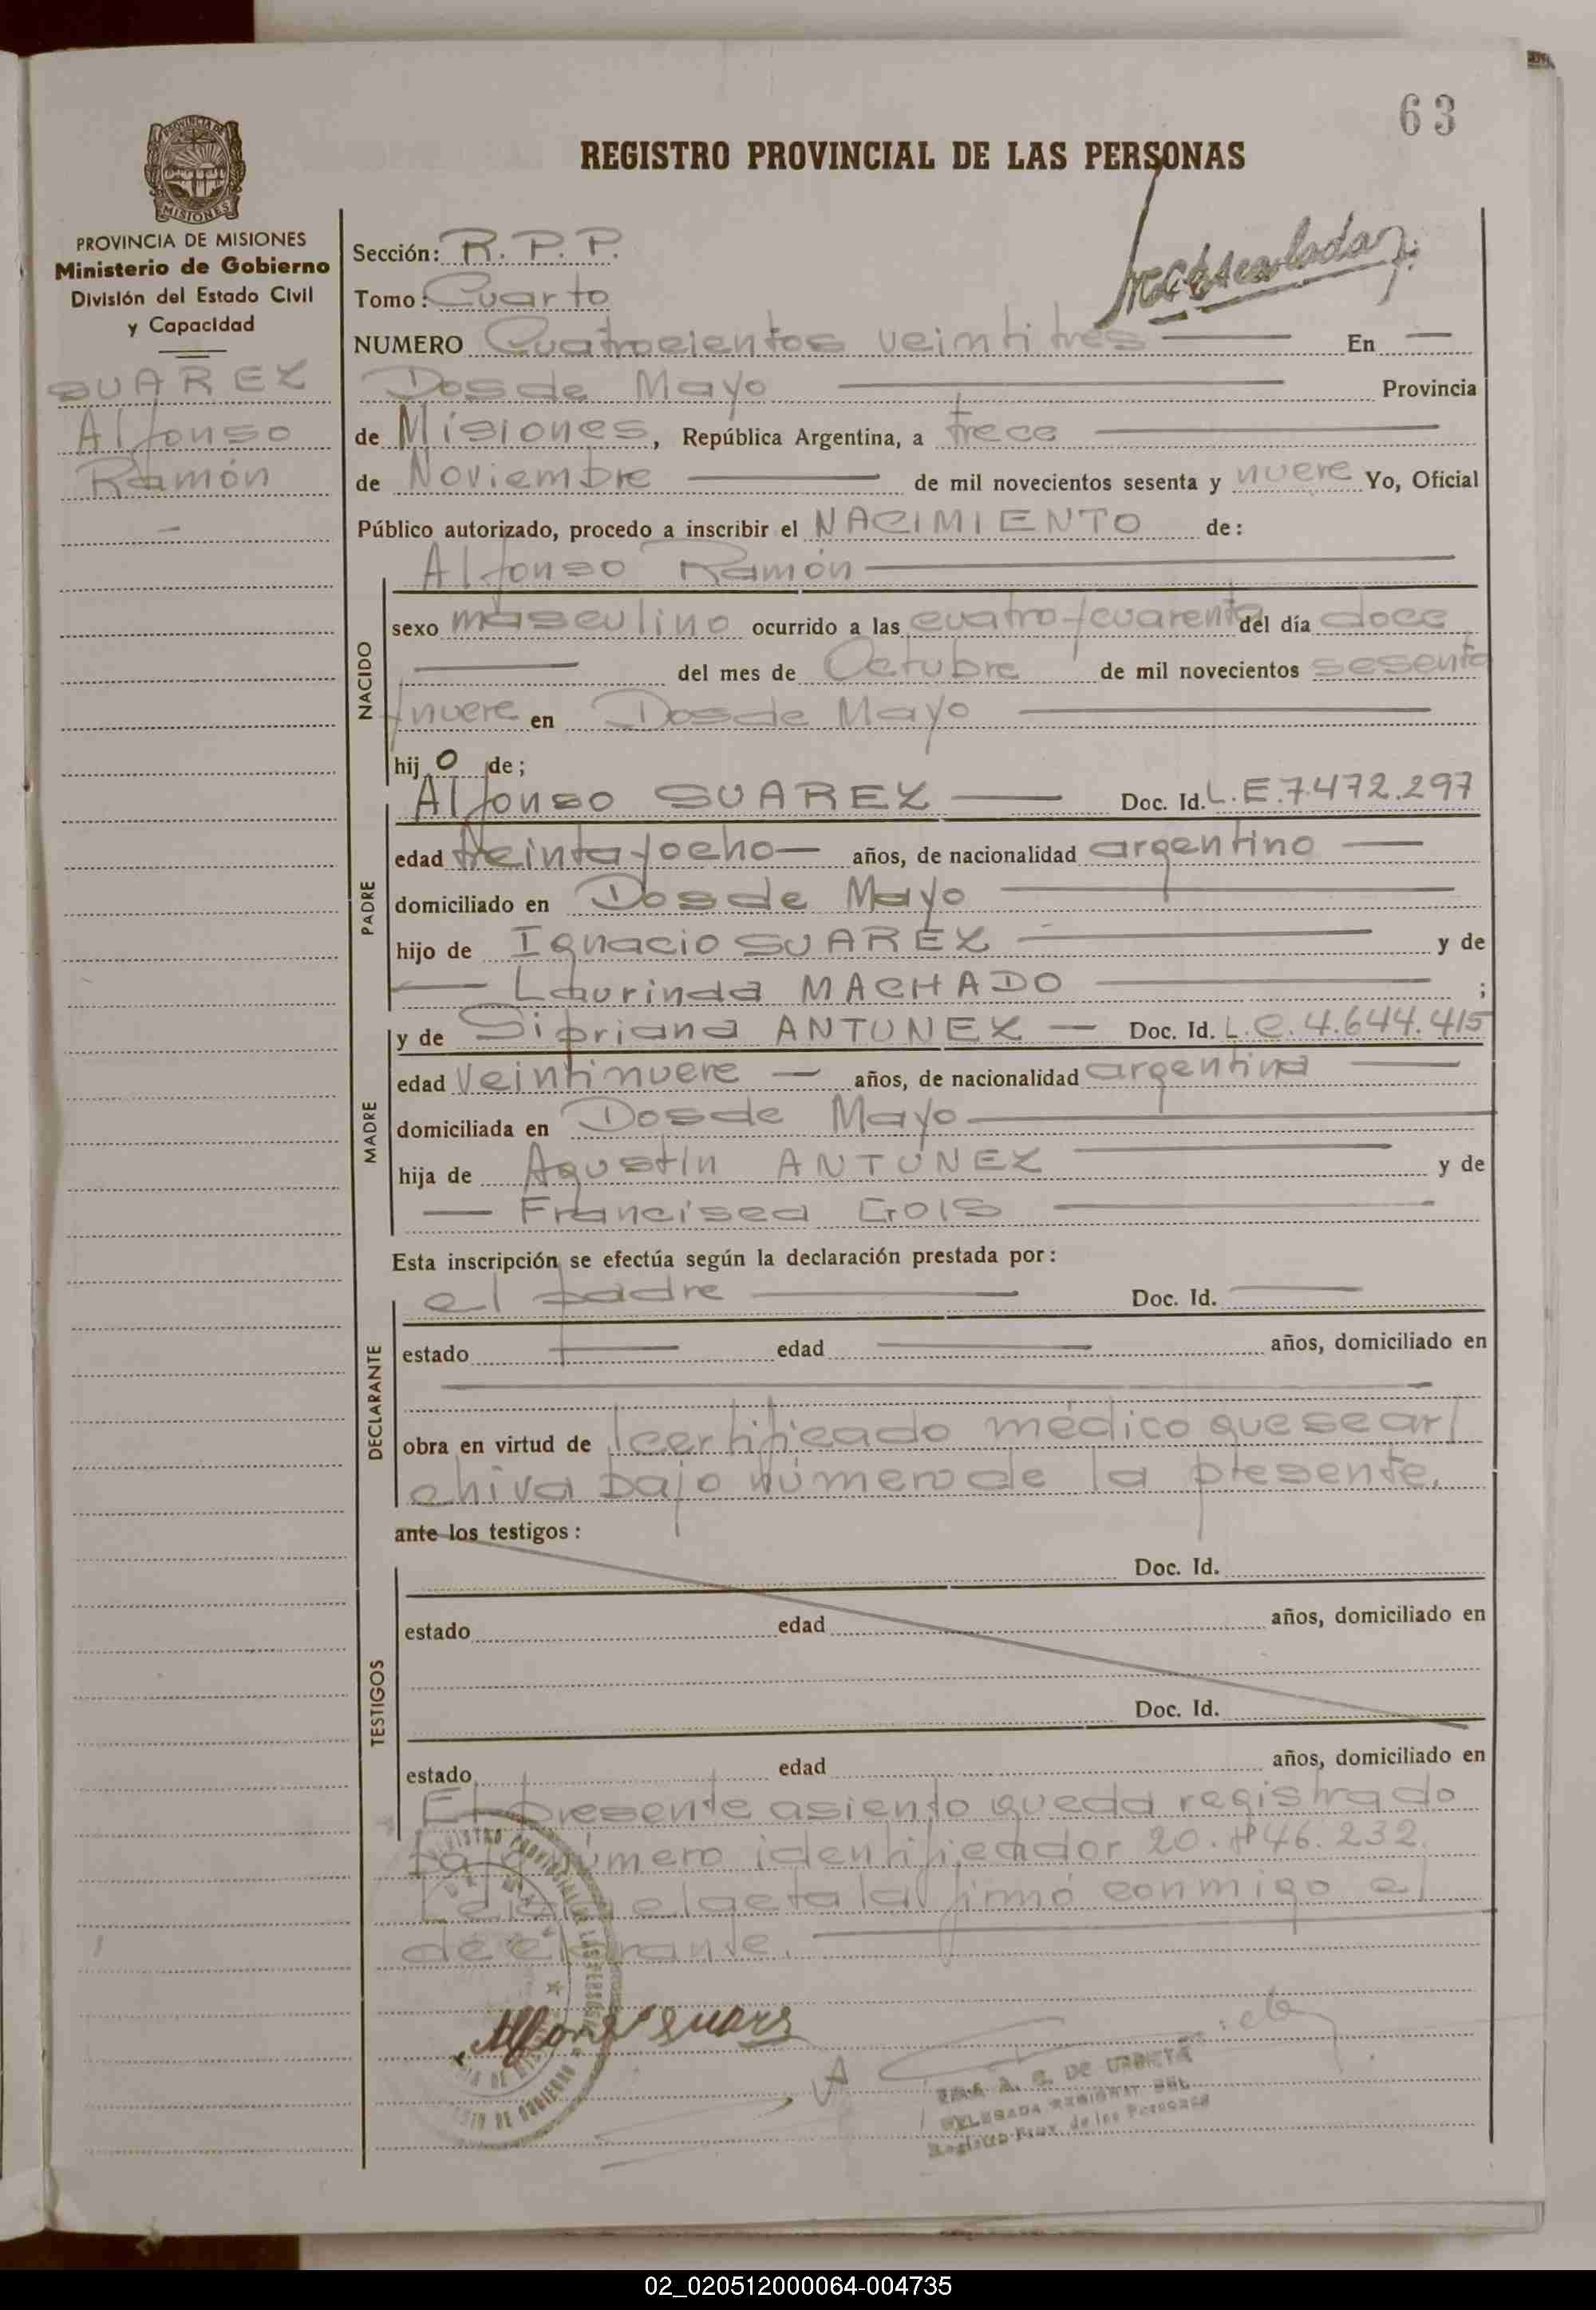 63
REGISTRO PROVINCIAL DE LAS PERSONAS
PROVINCIA DE MISIONES
Ministerio de Gobierno
División del Estado Civil
y Capacidad
SUAREZ
Alfonso
Ramón
Sección: R. P. P.
Tomo: Cuarto
NUMERO Cuatrocientos veintitres En
Dos de Mayo Provincia
de Misiones, República Argentina, a trece
de Noviembre de mil novecientos sesenta y nueve Yo, Oficial
Público autorizado, procedo a inscribir el NACIMIENTO de:
Alfonso Ramón
NACIDO
sexo masculino ocurrido a las cuatro y cuarenta del día doce
del mes de Octubre de mil novecientos sesenta
y nueve en Dos de Mayo
hijo de;
PADRE
Alfonso SUAREZ Doc. Id. L.E. 7.472.297
edad treinta y ocho años, de nacionalidad argentino
domiciliado en Dos de Mayo
hijo de Ignacio SUAREZ y de
Laurinda MACHADO ;
MADRE
y de Sipriana ANTUNEZ Doc. Id. L.C. 4.644.415
edad Veintinueve años, de nacionalidad argentina
domiciliada en Dos de Mayo
hija de Agustín ANTUNEZ y de
Francisca GOIS
Esta inscripción se efectúa según la declaración prestada por:
DECLARANTE
el padre Doc. Id.
estado edad años, domiciliado en
obra en virtud de certificado médico que se ar
chiva bajo número de la presente.
ante los testigos:
TESTIGOS
Doc. Id.
estado edad años, domiciliado en
Doc. Id.
estado edad años, domiciliado en
El presente asiento queda registrado
bajo número identificador 20. 46.232.
Leida el acta la firmó conmigo el
declarante.
DE URBIETA
DELEGADA
Registro Prov. de las Personas
02_020512000064-004735